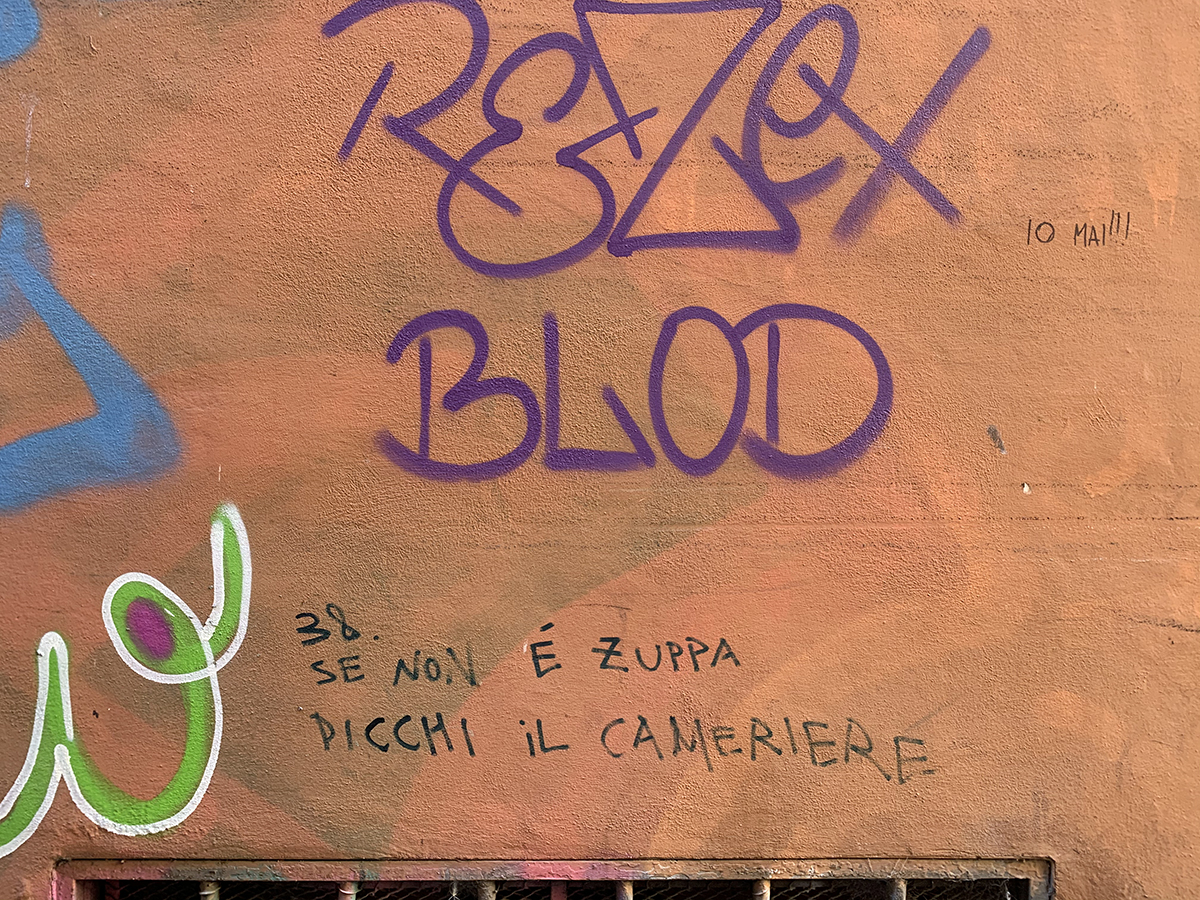 REZEX
IO MAI!!!
BLOD
38.
SE NON É ZUPPA
PICCHI iL CAMERIERE